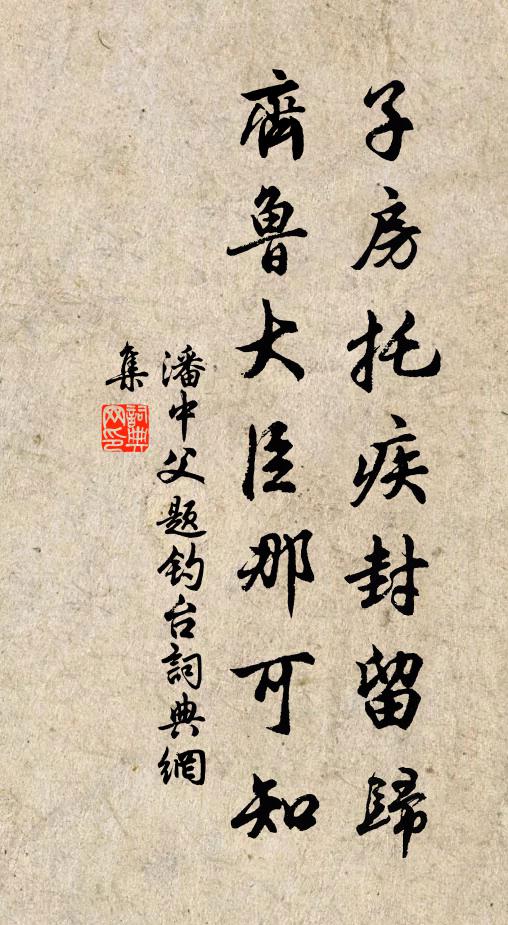 子房托疾封留歸
齊魯大臣那可知
潘中父題釣台詞典網
集
詞典網印